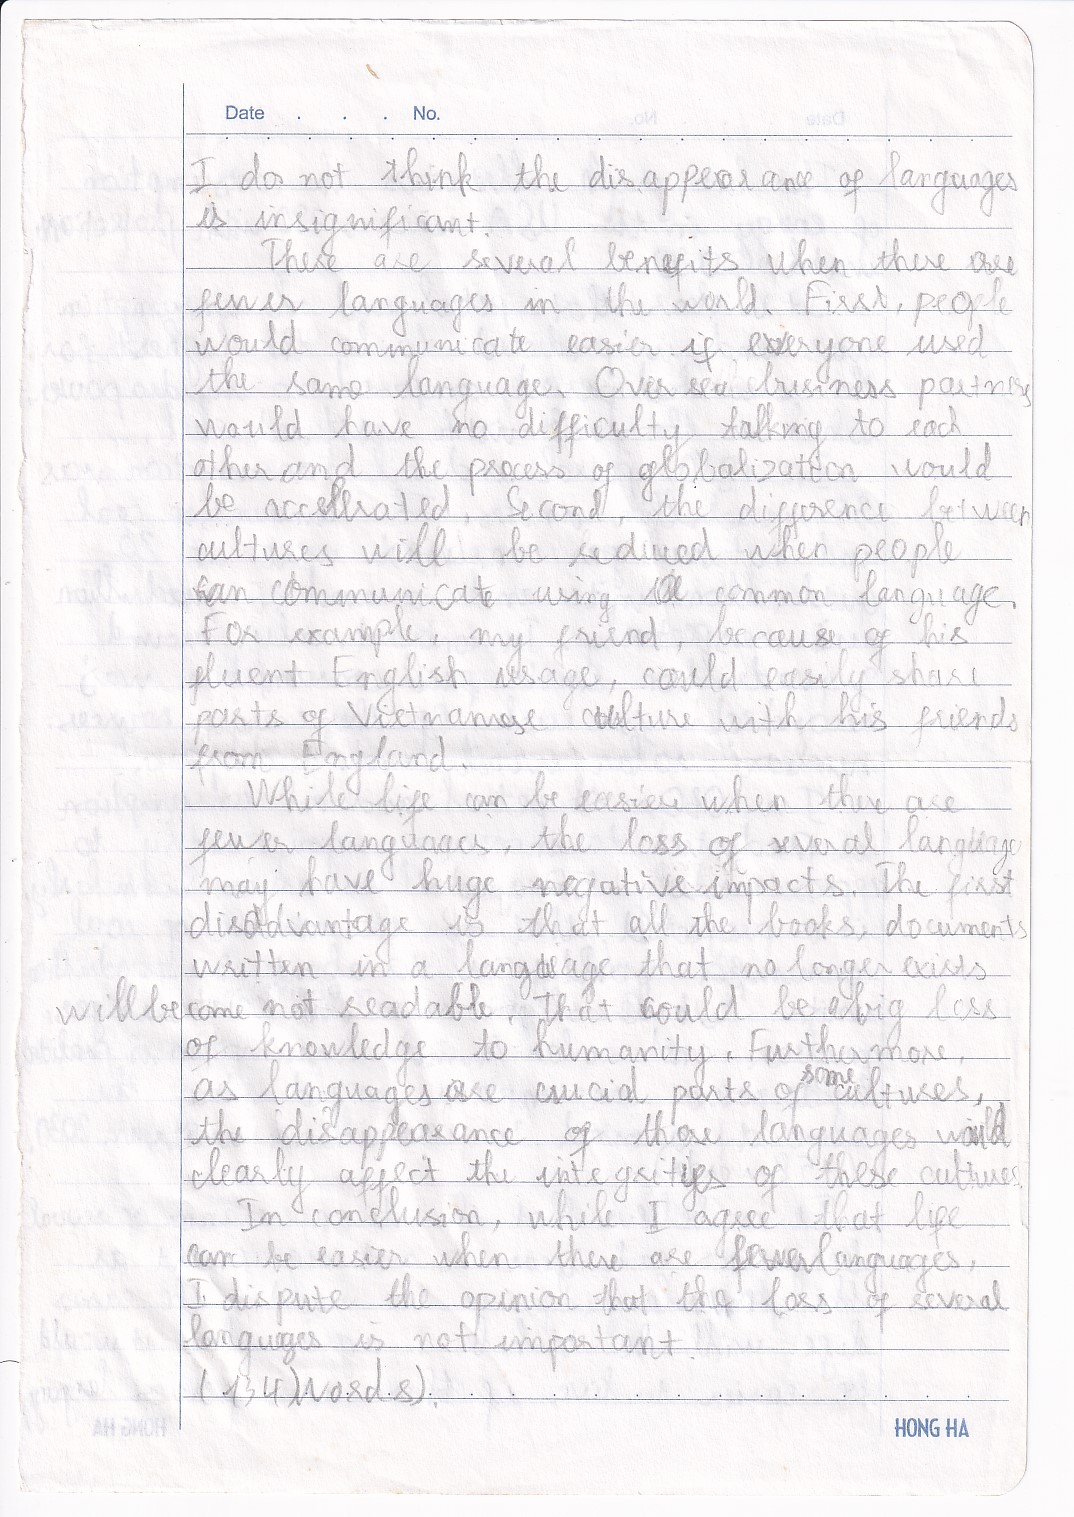 Date . . . No.
I do not think the disappearance of languages
is insignificant.
There are several benefits when there are
fewer languages in the world. First, people
would communicate easier if everyone used
the same language. Oversea business partners
would have no difficulty talking to each
other and the process of globalization would
be accelerated. Second, the difference between
cultures will be reduced when people
can communicate using a common language.
For example, my friend, because of his
fluent English usage, could easily share
parts of Vietnamese culture with his friends
from England.
While life can be easier when there are
fewer languages, the loss of several language
may have huge negative impacts. The first
disadvantage is that all the books, documents
written in a language that no longer exists
will become not readable. That could be a big loss
of knowledge to humanity. Furthermore,
as languages are crucial parts of some cultures,
the disappearance of those languages would
clearly affect the integrities of these cultures.
In conclusion, while I agree that life
can be easier when there are fewer languages,
I dispute the opinion that the loss of several
languages is not important.
(words).
HONG HA